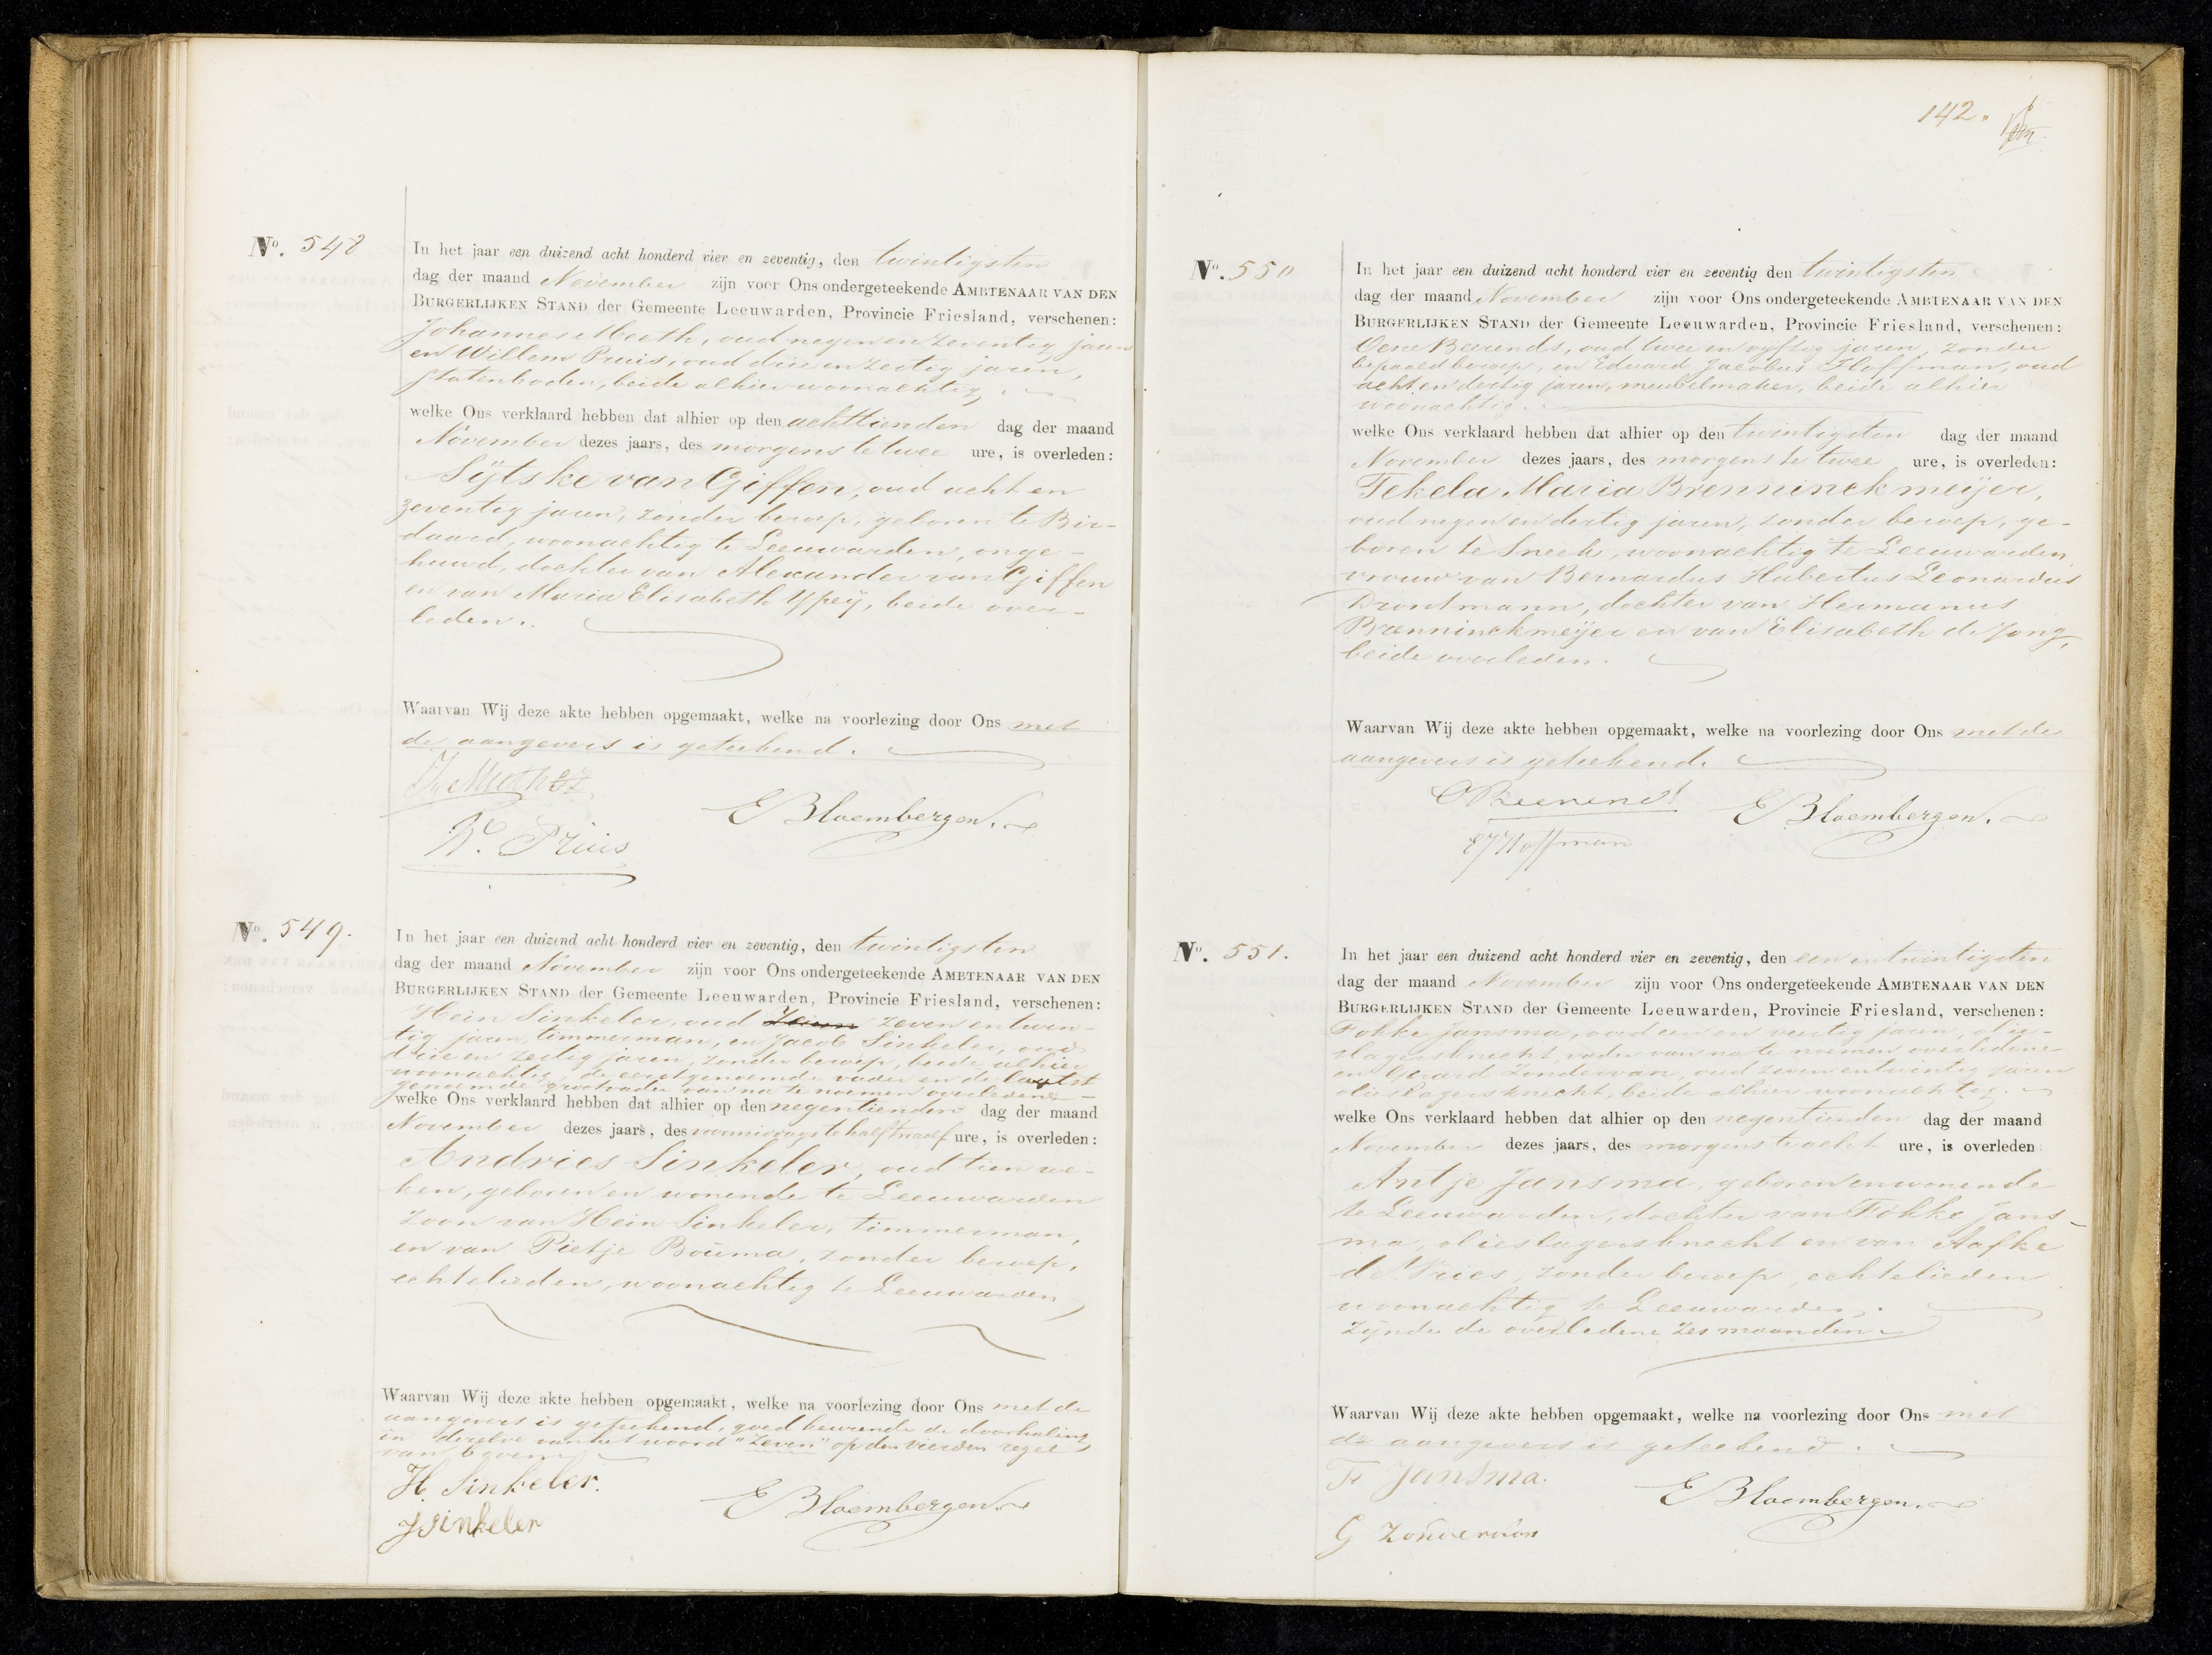 No. 548
In het jaar een duizend acht honderd vier en zeventig, den twintigsten
dag der maand November zijn voor Ons ondergeteekende AMBTENAAR VAN DEN
BURGERLIJKEN STAND der Gemeente Leeuwarden, Provincie Friesland, verschenen:
Johannes Meeth, oud negen en zeventig jaren
en Willem Pruis, oud drie en zestig jaren,
statenboden, beide alhier woonachtig,
welke Ons verklaard hebben dat alhier op den achttienden dag der maand
November dezes jaars, des morgens te twee ure, is overleden:
Sÿtske van Giffen, oud acht en
zeventig jaren, zonder beroep, geboren te Bir-
daard, woonachtig te Leeuwarden, onge-
huwd, dochter van Alexander van Giffen
en van Maria Elisabeth Ypeÿ, beide over-
leden.
Waarvan Wij deze akte hebben opgemaakt, welke na voorlezing door Ons met
de aangevers is geteekend.
E Bloembergen.
W. Pruis
No. 549.
In het jaar een duizend acht honderd vier en zeventig, den twintigsten
dag der maand November zijn voor Ons ondergeteekende AMBTENAAR VAN DEN
BURGERLIJKEN STAND der Gemeente Leeuwarden, Provincie Friesland, verschenen:
Hein Sinkeler, oud zeven zeven en twin-
tig jaren, timmerman, en Jacob Sinkeler, oud
drie en zestig jaren, zonder beroep, beide alhier
woonachtig, de eerstgenoemde vader en de laatst
genoemde grootvader van na te noemen overledene
welke Ons verklaard hebben dat alhier op den negentienden dag der maand
November dezes jaars, des voormiddags te half twaalf ure, is overleden:
Andries Sinkeler, oud tien we-
ken, geboren en wonende te Leeuwarden
zoon van Hein Sinkeler, timmerman,
en van Pietje Bouma, zonder beroep,
echtelieden, woonachtig te Leeuwarden
Waarvan Wij deze akte hebben opgemaakt, welke na voorlezing door Ons met de
aangevers is geteekend, goedkeurende de doorhaling
in dezelve van het woord "Zeven" op den vierden regel
van boven
H. Sinkeler.
E Bloembergen.
J Sinkeler
142.
No. 550
In het jaar een duizend acht honderd vier en zeventig den twintigsten
dag der maand November zijn voor Ons ondergeteekende AMBTENAAR VAN DEN
BURGERLIJKEN STAND der Gemeente Leeuwarden, Provincie Friesland, verschenen:
Oene Beerends, oud twee en vijftig jaren, zonder
bepaald beroep, en Eduard Jacobus Hoffman, oud
acht en dertig jaren, meubelmaker, beide alhier
woonachtig.
welke Ons verklaard hebben dat alhier op den twintigsten dag der maand
November dezes jaars, des morgens te twee ure, is overleden:
Tekela Maria Brenninckmeijer,
oud negen en dertig jaren, zonder beroep, ge-
boren te Sneek, woonachtig te Leeuwarden,
vrouw van Bernardus Hubertus Leonardus
Drontmann, dochter van Hermanus
Brenninckmeijer en van Elisabeth de Jong,
beide overleden.
Waarvan Wij deze akte hebben opgemaakt, welke na voorlezing door Ons met de
aangevers is geteekend.
O Beerends
E Bloembergen.
EJ Hoffman
No. 551.
In het jaar een duizend acht honderd vier en zeventig, den een en twintigsten
dag der maand November zijn voor Ons ondergeteekende AMBTENAAR VAN DEN
BURGERLIJKEN STAND der Gemeente Leeuwarden, Provincie Friesland, verschenen:
Fokke Jansma, oud een en veertig jaren, olie-
slagersknecht, vader van na te noemen overledene
en Gerard Zondervan, oud zeven en twintig jaren
olieslagersknecht, beide alhier woonachtig.
welke Ons verklaard hebben dat alhier op den negentienden dag der maand
November dezes jaars, des morgens te acht ure, is overleden:
Antje Jansma, geboren en wonende
te Leeuwarden, dochter van Fokke Jans-
ma, olieslagersknecht en van Aafke
de Vries, zonder beroep, echtelieden
woonachtig te Leeuwarden.
zijnde de overledene zes maanden
Waarvan Wij deze akte hebben opgemaakt, welke na voorlezing door Ons met
de aangevers is geteekend.
F Jansma.
E Bloembergen.
G Zondervan